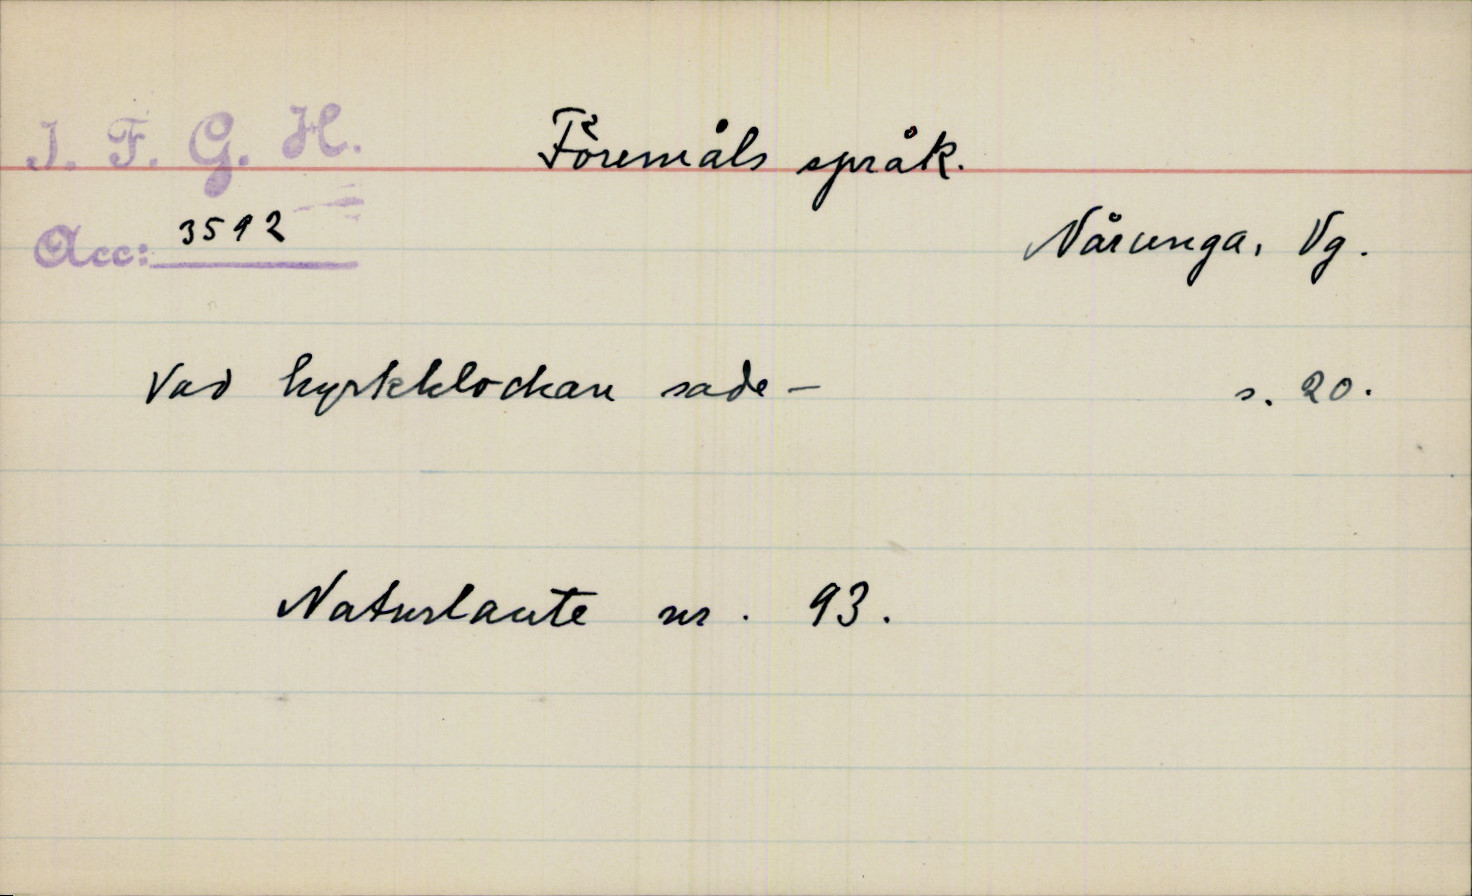 I. F. G. H.
Föremåls språk.
Acc: 3592
Nårunga, Vg.
Vad kyrkklockan sade – s. 20.
Naturlaute nr. 93.